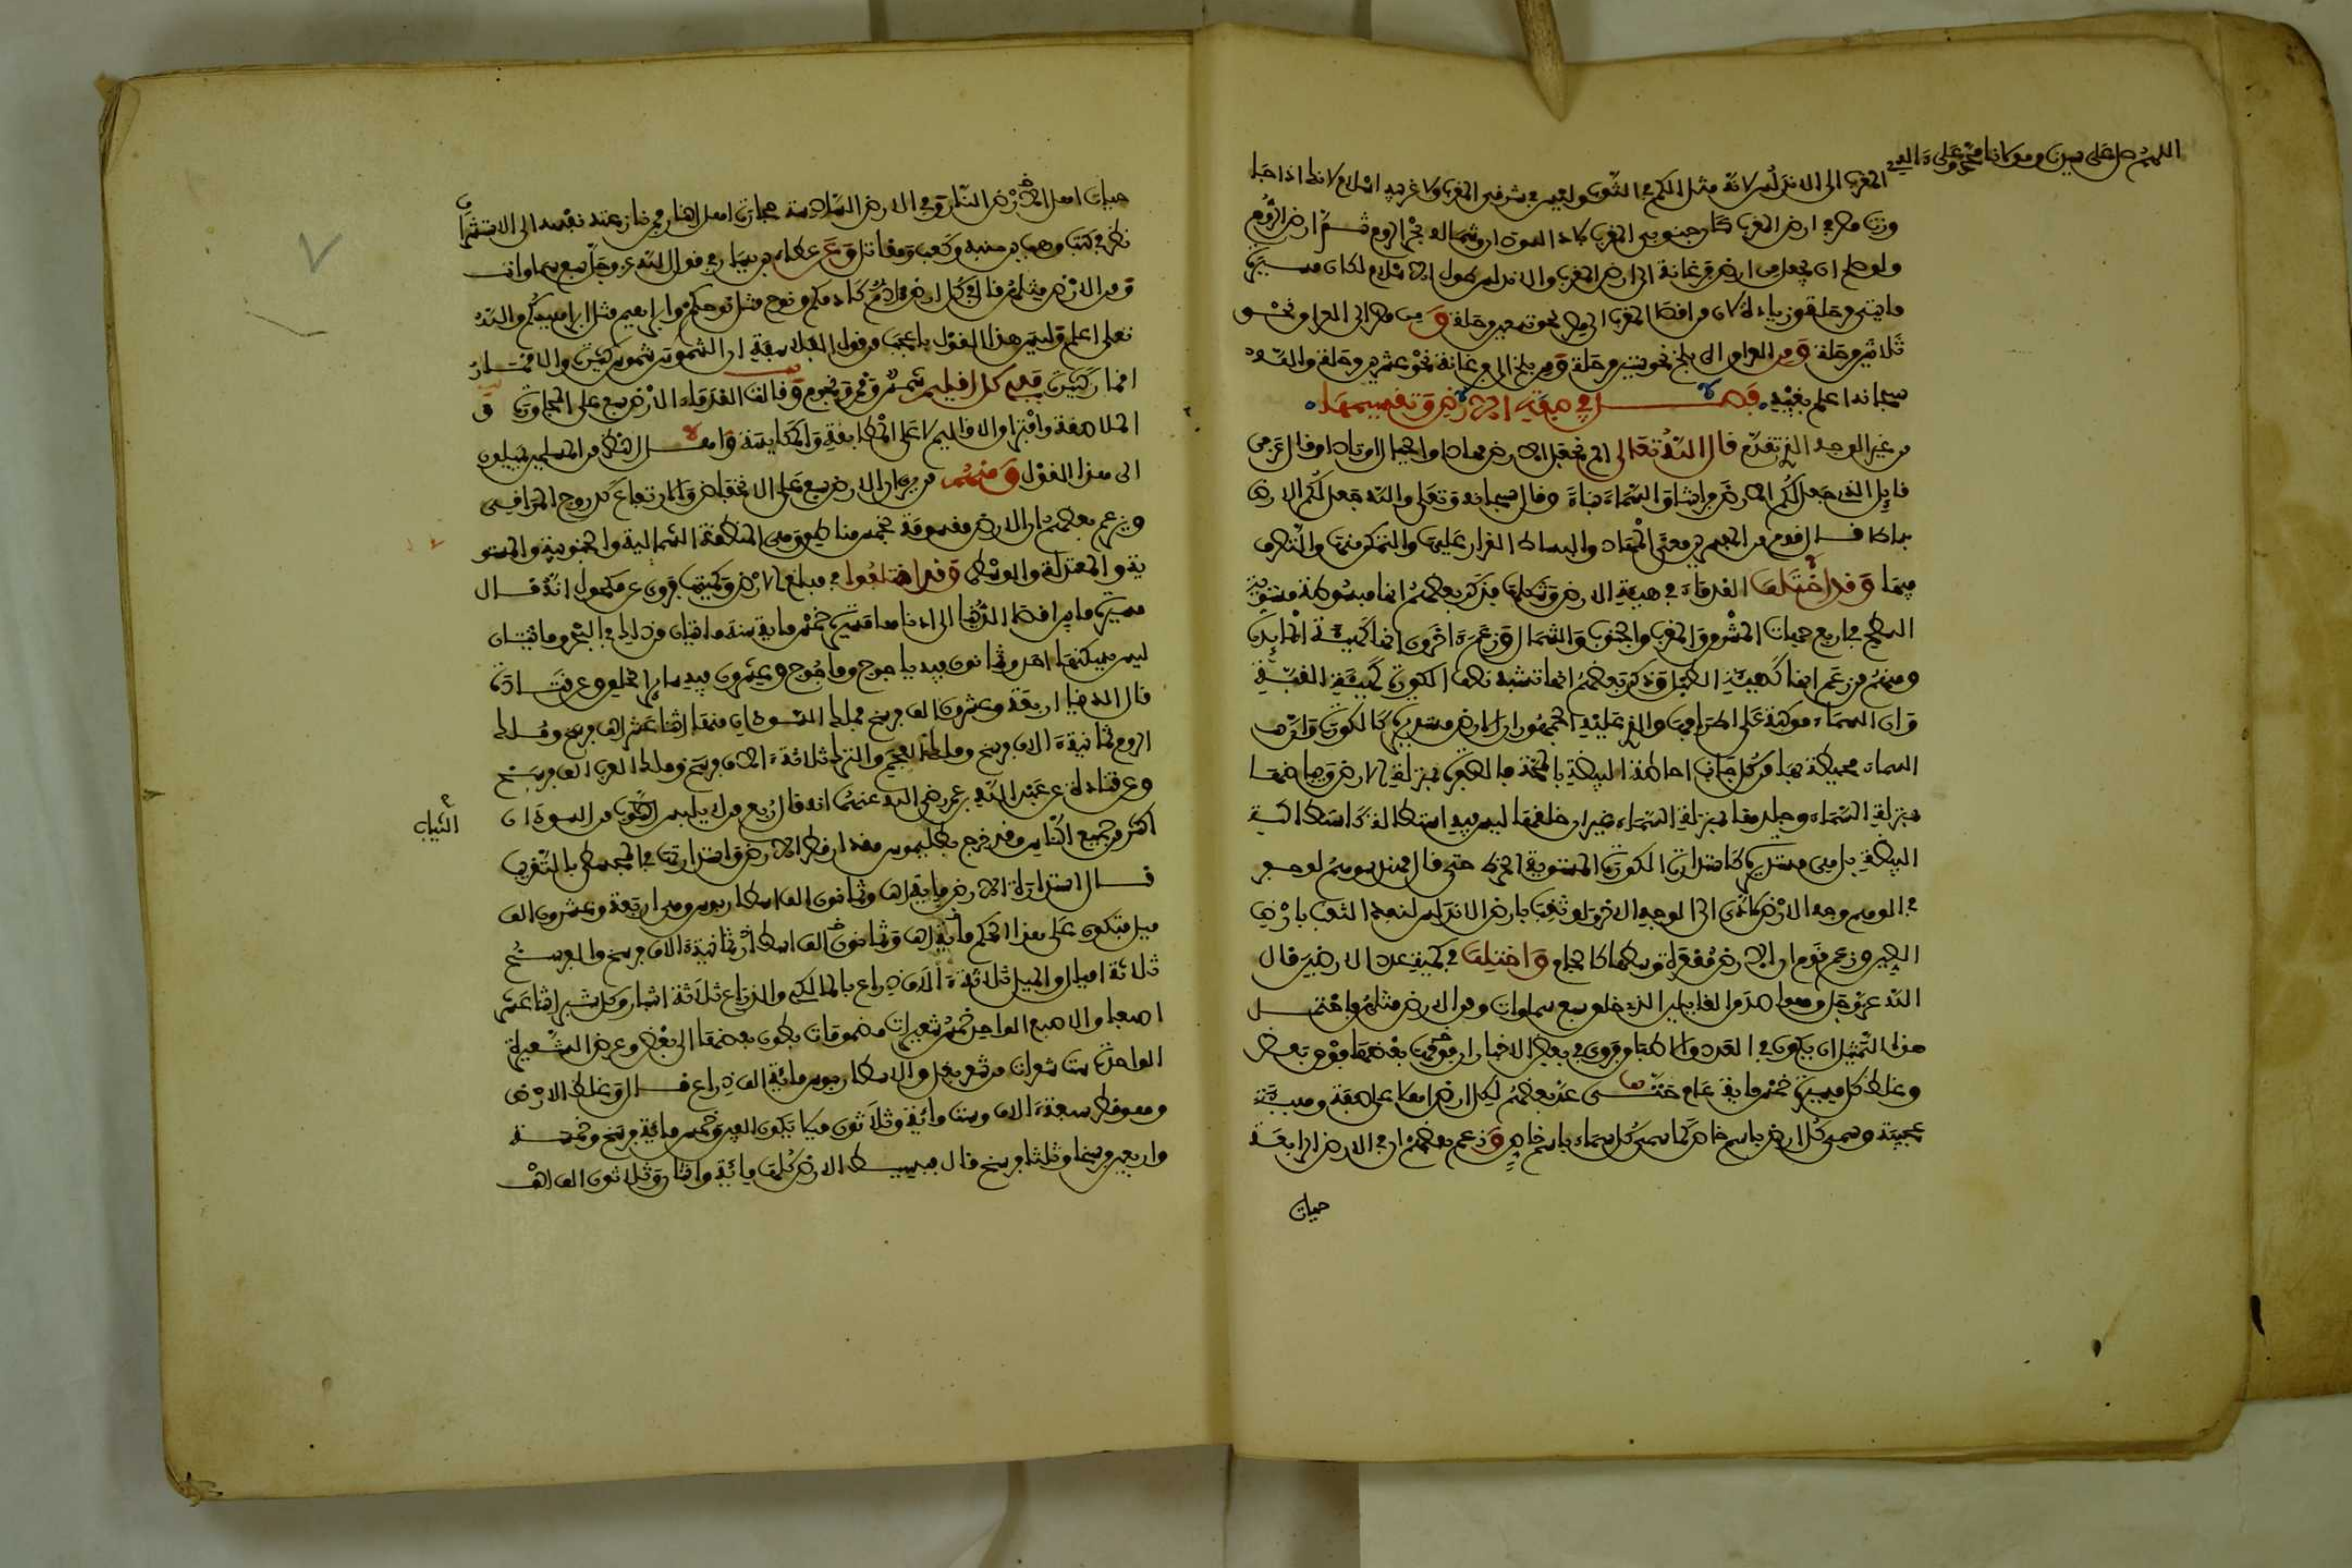 اللهم صل على سيدنا ومولانا محمد وعلى ءاله
المغرب الى الاندلس لانه مثل الكم في الثوب وليس في شرقي المغرب ولا غربيه اسلام لانك اذا جا
وزت مصر في ارض المغرب كان جنوبي المغرب بلاد السودان وشماله بحر الروم ثم ارض الروم
ولو صلح ان يجعل من ارض فرغانة الى ارض المغرب والاندلس طول الاسلام لكان مسيرة
مايتي مرحلة وزيادة لان من اقصا المغرب الى مصر نحو تسعين مرحلة ومن مصر الى العراق نحو
ثلاثين مرحلة ومن العراق الى بلخ نحو ستين مرحلة ومن بلخ الى فرغانة نحو عشرين مرحلة والله
سبحانه اعلم بغيبه فصل في صفة الارض وتقسيمها
من غير الوجه الذي تقدم قال الله تعالى الم نجعل الارض مهادا والجبال اوتادا وقال عز من
قايل الذي جعل لكم الارض فراشا والسماء بناء وقال سبحانه وتعالى والله جعل لكم الارض
بساطا قال قوم من المفسرين معنى المهاد والبساط القرار عليها والتمكن منها والتصرف
فيها وقد اختلف القدماء في هيئة الارض وشكلها فذكر بعضهم انها مبسوطة مستوية
السطح في اربع جهات المشرق والمغرب والجنوب والشمال وزعم ءاخرون انها كهيئة المايدة
ومنهم من زعم انها كهيئة الطبل وذكر بعضهم انها تشبه نصف الكورة كهيئة القبة
وان السماء مركبة على اطرافها والذي عليه الجمهور ان الارض مستديرة كالكورة وان
السماء محيطة بها من كل جانب احاطة البيضة بالمحة فالصفرة بمنزلة الارض وبياضها
بمنزلة السماء وجلدها بمنزلة السماء غير ان خلقها ليس فيه استطالة كاستطالة
البيضة بل هي مستديرة كاستدارة الكورة المستوية الخرط حتى قال مهندسوهم لو حفر
في الوهم وجه الارض لادى الى الوجه الاخر ولو ثقب بارض الاندلس لنفذ الثقب بارض
الصين وزعم قوم ان الارض مقعرة وسطها كالجام واختلف في كمية عدد الارضين قال
الله عز وجل وهو اصدق القايلين الذي خلق سبع سماوات ومن الارض مثلهن فاحتمل
هذا التمثيل ان يكون في العدد والاطباق فروي في بعض الاخبار ان بعضها فوق بعض
وغلظ كل مسيرة خمس ماية عام حتى عد بعضهم لكل ارض اهلا على صفة وهيئة
عجيبة وسمى كل ارض باسم خاص كما سمى كل سماء باسم خاص وزعم بعضهم ان في الارض الرابعة
حيات
حيات اهل النار وفي الارض السادسة حجارة اهل النار فمن نازعته نفسه الى الاستشراف
نظر في كتب وهب بن منبه وكعب ومقاتل وعن عطاء بن يسار في قول الله عز وجل سبع سماوات
ومن الارض مثلهن قال في كل ارض ءادم كادمكم ونوح مثل نوحكم وابراهيم مثل ابراهيمكم والله
تعلى اعلم وليس هذا القول باعجب من قول الفلاسفة ان الشموس شموس كثيرة والاقمار
اقمار كثيرة ففي كل اقليم شمس وقمر ونجوم وقالت القدماء الارض سبع على المجاورة و
الملاصقة وافتراق الاقاليم لا على المطابقة والمكابسة واهل النظر من المسلمين يميلون
الى هذا القول ومنهم من يرى ان الارض سبع على الانخفاض والارتفاع كدرج المراقي
ويزعم بعضهم ان الارض مقسومة خمس مناطق وهي المنطقة الشمالية والجنوبية والمستو
ية والمعتدلة والوسطى وقد اختلفوا في مبلغ الارض وكميتها فروي عن مكحول انه قال
مسيرة ما بين اقصا الدنيا الى ادناها مسيرة خمس ماية سنة مايتان من ذلك في البحر ومايتان
ليس يسكنها احد وثمانون فيه ياجوج وماجوج وعشرون فيه ساير الخلق وعن قتادة
قال الدنيا اربعة وعشرون الف فرسخ فملك السودان منها اثنا عشر الف فرسخ وملك
الروم ثمانية ءالاف فرسخ وملك العجم والترك ثلاثة ءالاف فرسخ وملك العرب الف فرسخ
وعن قتادة عن عبد الله بن عمر رضي الله عنهما انه قال ربع من لا يلبس من السودان
الثياب
اكثر من جميع الناس وقد خرج بطليموس مقدار قطر الارض واستدارتها في المجسطي بالتقريب
قال استدارة الارض ماية الف وثمانون الف اسطاريوس وهي اربعة وعشرون الف
ميل فتكون على هذا الحكم ماية الف وثمانون الف اسطار ثمانية الاف فرسخ والفرسخ
ثلاثة اميال والميل ثلاثة ءالاف ذراع بالملكي والذراع ثلاثة اشبار وكل شبر اثنا عشر
اصبعا والاصبع الواحد خمس شعيرات مضمومات بطون بعضها الى بعض وعرض الشعيرة
الواحدة ست شعرات من شعر بغل والاسطاريوس ماية الف ذراع قال وغلظ الارض
وهو قطر سبعة ءالاف وست مائة وثلاثون ميلا يكون الفين وخمس مائة فرسخ وخمسة
واربعين فرسخا وثلثا فرسخ قال فبسيط الارض كلها مائة واثنان وثلاثون الف الف